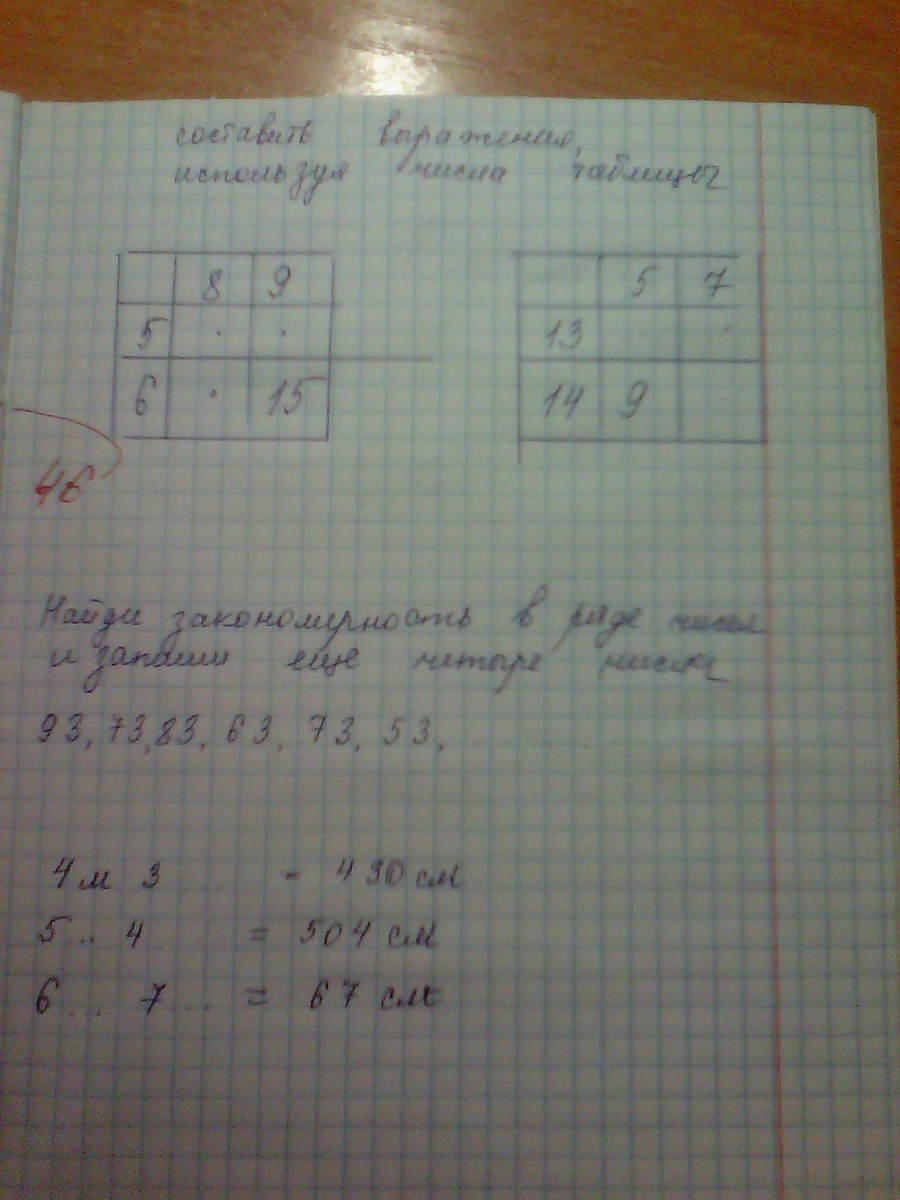 составить выражения,
используя числа таблицы
8 9
5 . .
6 . 15
5 7
13 . .
14 9
46
Найди закономерность в ряде чисел
и запиши еще четыре числа
93, 73, 83, 63, 73, 53,
4м 3 - 430 см
5... 4 = 504 см
6... 7... = 67 см